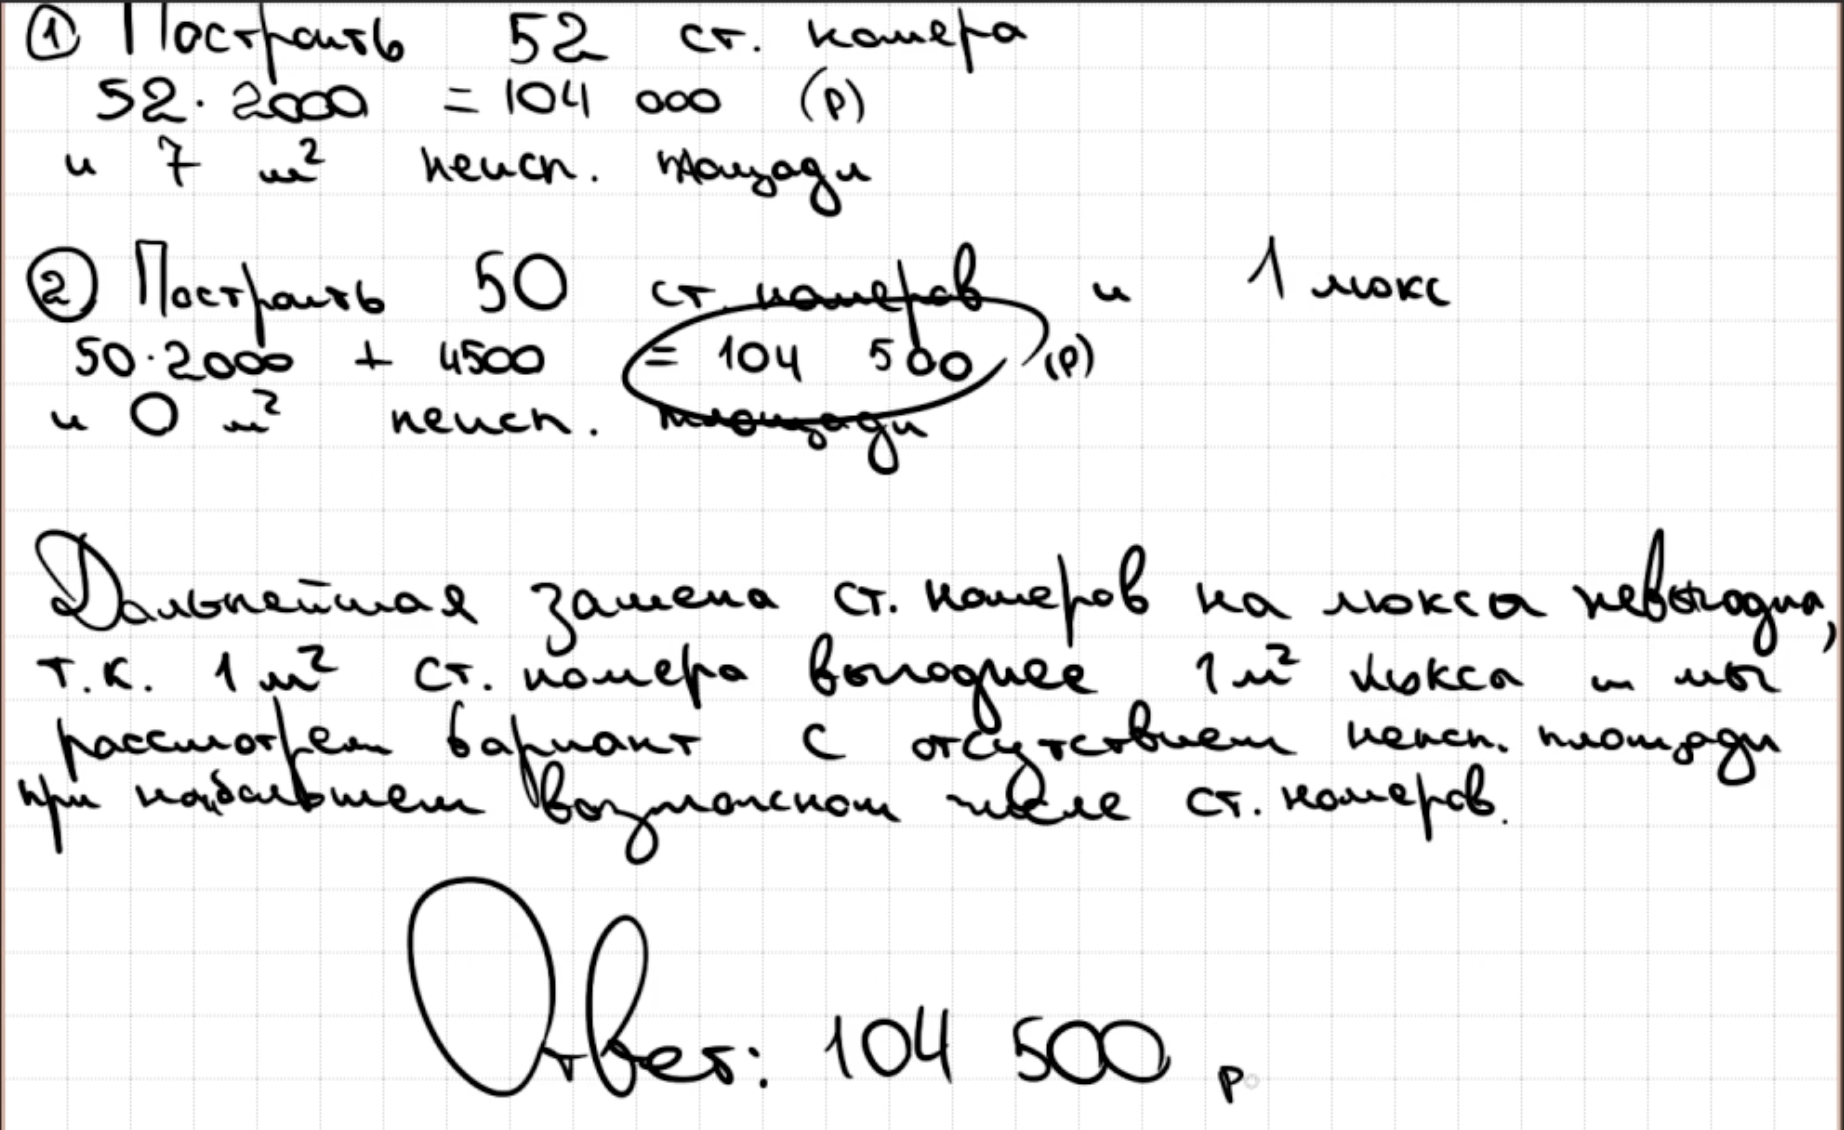 ① Построить 52 ст. номера
52 · 2000 = 104 000 (р)
и 7 м² неисп. площади
② Построить 50 ст. номеров и 1 люкс
50 · 2000 + 4500 = 104 500 (р)
и 0 м² неисп. площади
Дальнейшая замена ст. номеров на люксы невыгодна,
т.к. 1 м² ст. номера выгоднее 1 м² люкса и мы
рассмотрели вариант с отсутствием неисп. площади
при наибольшем возможном числе ст. номеров.
Ответ: 104 500 р